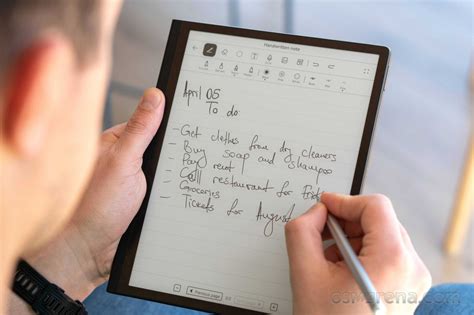 Handwritten note
April 05
To do:
- Get clothes from dry cleaners
- Buy soap and shampoo
- Pay rent
- Call restaurant for
- Groceries
- Tickets for August
Previous page
gsmarena.com